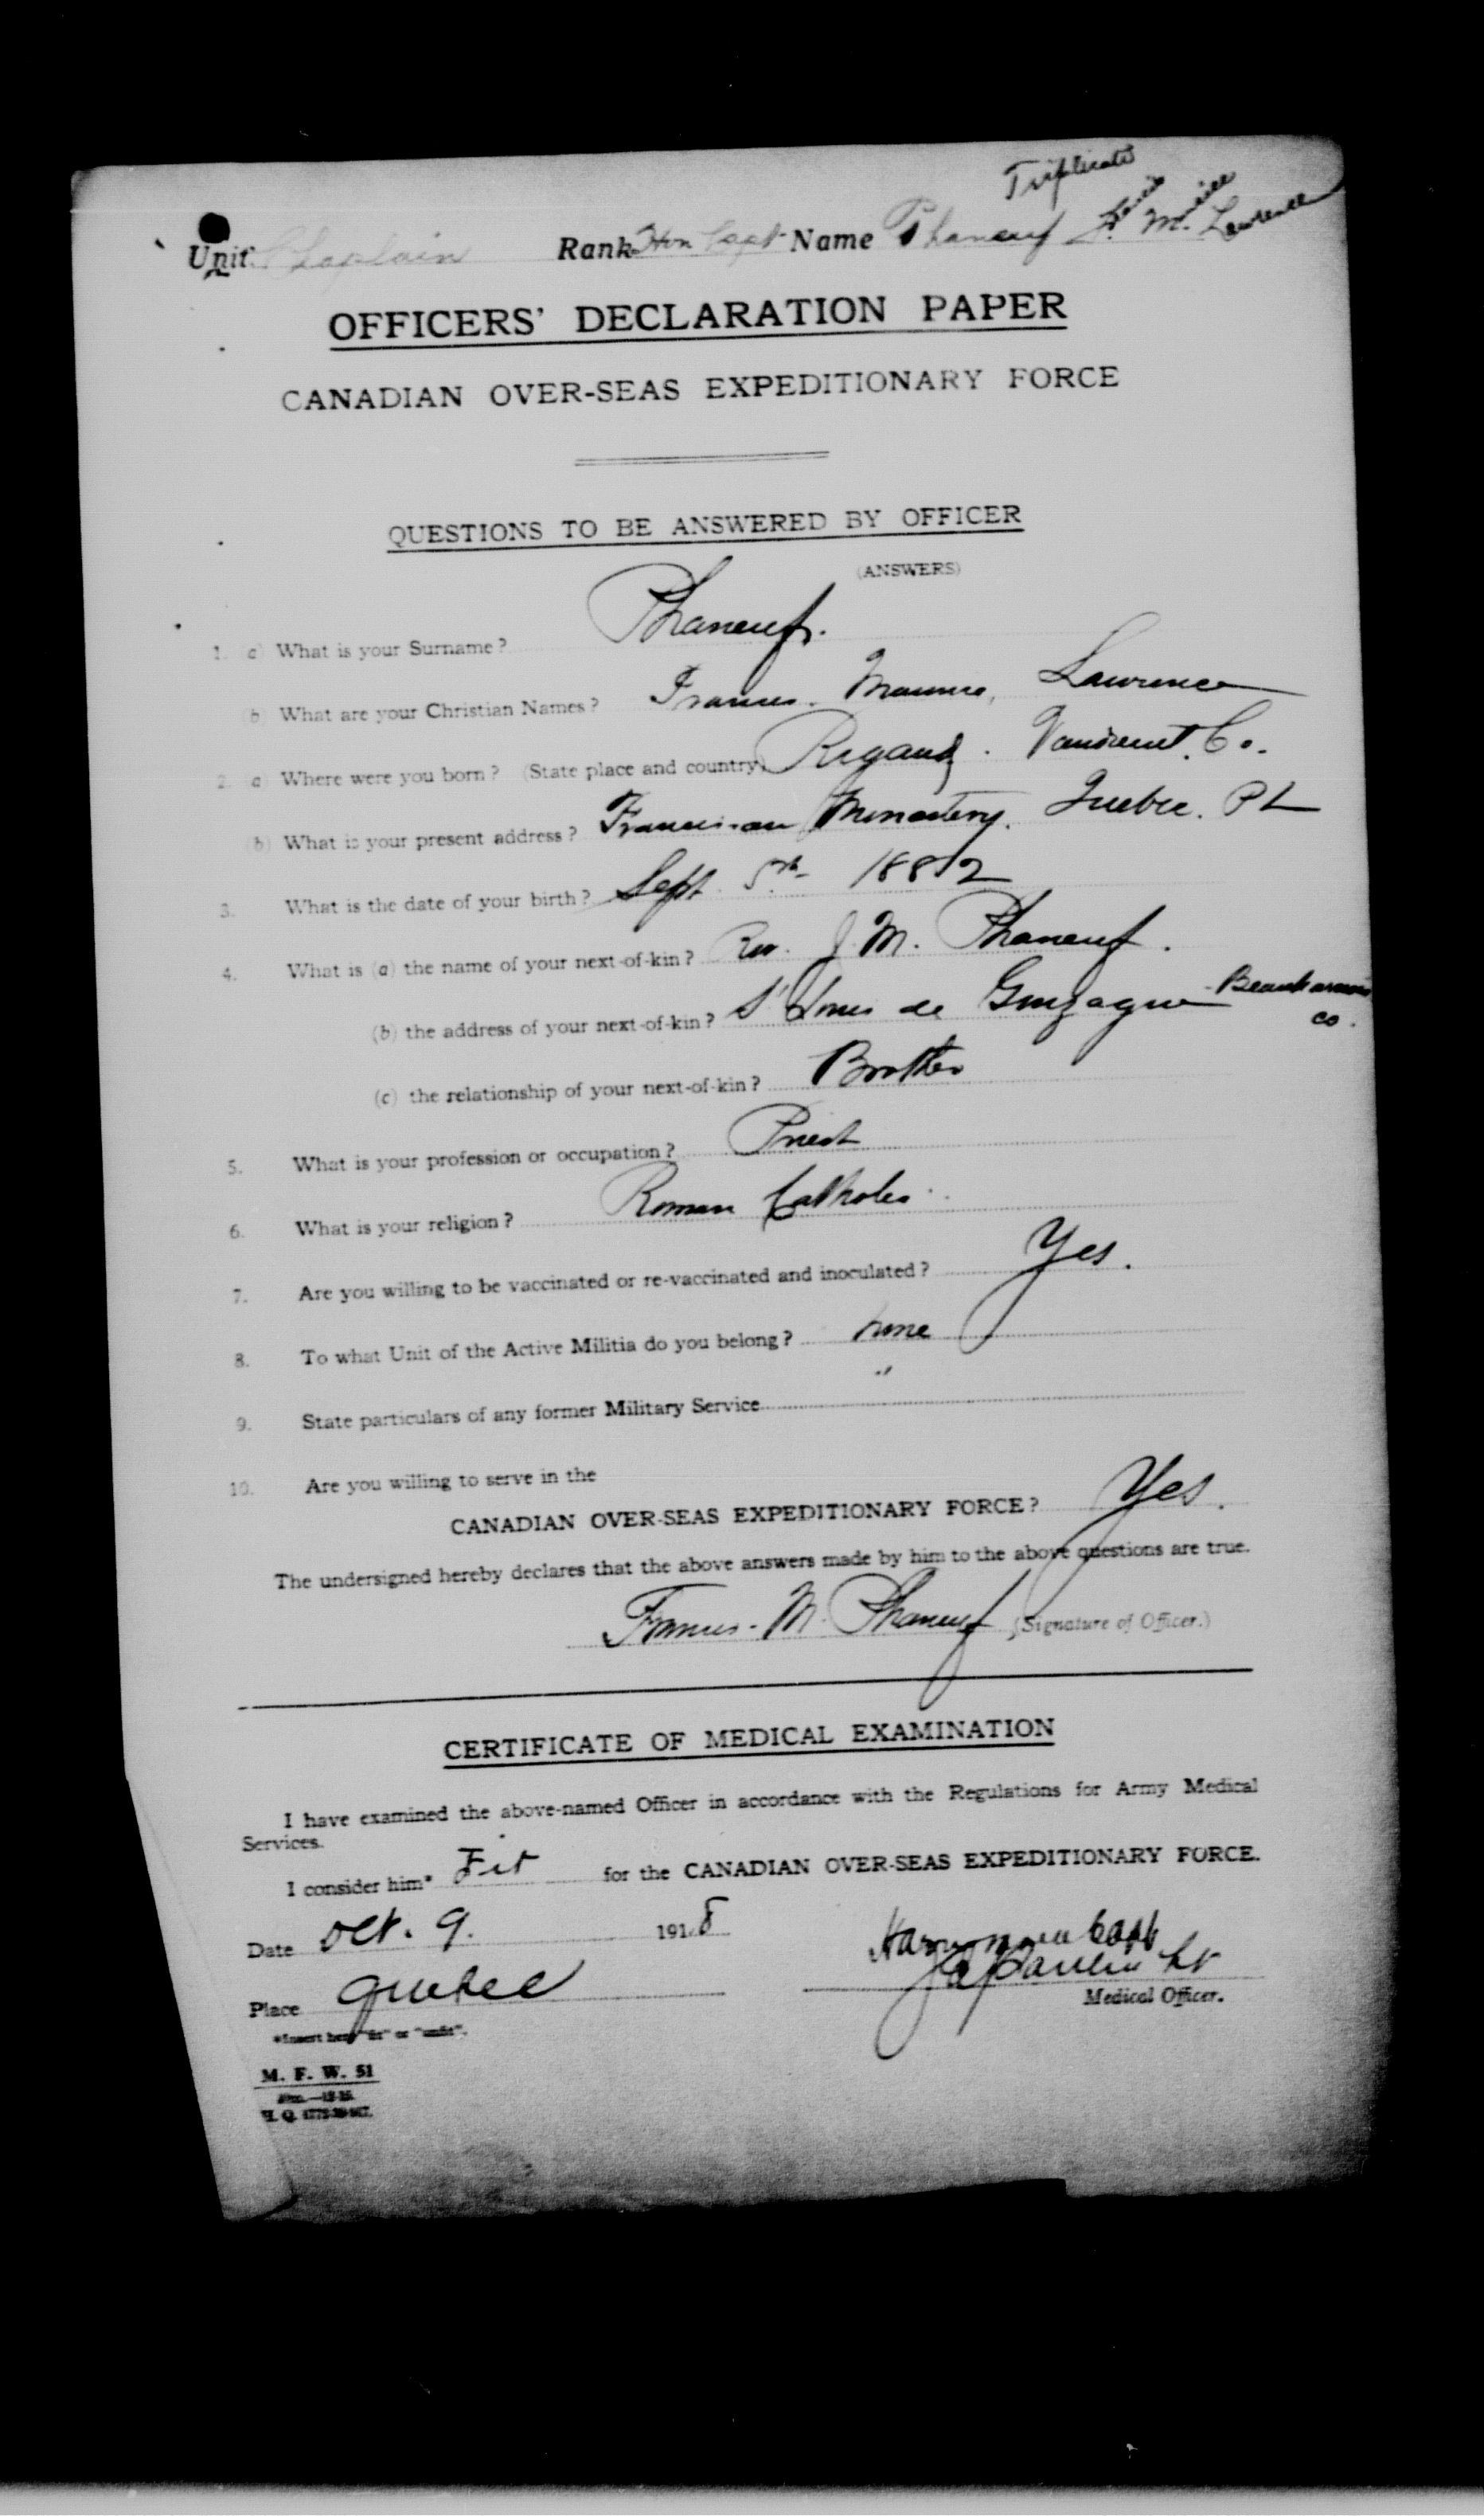 Triplicate
Unit Chaplain Rank Hon Capt Name Phaneuf F. M. Lawrence
OFFICERS' DECLARATION PAPER
CANADIAN OVER-SEAS EXPEDITIONARY FORCE
QUESTIONS TO BE ANSWERED BY OFFICER
(ANSWERS)
1. a) What is your Surname? Phaneuf.
(b) What are your Christian Names? Francis. Maurice, Lawrence
2. a) Where were you born? (State place and country) Rigaud. Vaudreuil. Co.
(b) What is your present address? Franciscan Monastery. Quebec. P
3. What is the date of your birth? Sept. 5th 1882
4. What is (a) the name of your next-of-kin? Rev. J. M. Phaneuf.
(b) the address of your next-of-kin? St Louis de Gonzague Beauharnois
co.
(c) the relationship of your next-of-kin? Brother
5. What is your profession or occupation? Priest
6. What is your religion? Roman Catholic.
7. Are you willing to be vaccinated or re-vaccinated and inoculated? Yes.
8. To what Unit of the Active Militia do you belong? None
9. State particulars of any former Military Service "
10. Are you willing to serve in the
CANADIAN OVER-SEAS EXPEDITIONARY FORCE? Yes.
The undersigned hereby declares that the above answers made by him to the above questions are true.
Francis. M. Phaneuf (Signature of Officer.)
CERTIFICATE OF MEDICAL EXAMINATION
I have examined the above-named Officer in accordance with the Regulations for Army Medical
Services.
I consider him* Fit for the CANADIAN OVER-SEAS EXPEDITIONARY FORCE.
Date Oct. 9. 1918
Capt
Place Quebec
Medical Officer.
*Insert here "fit" or "unfit".
M. F. W. 51
H. Q.